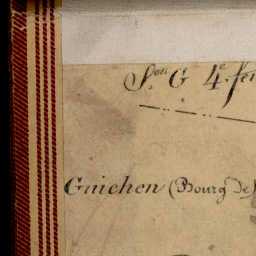 S.on G 4e fe
Guichen (Bourg de)